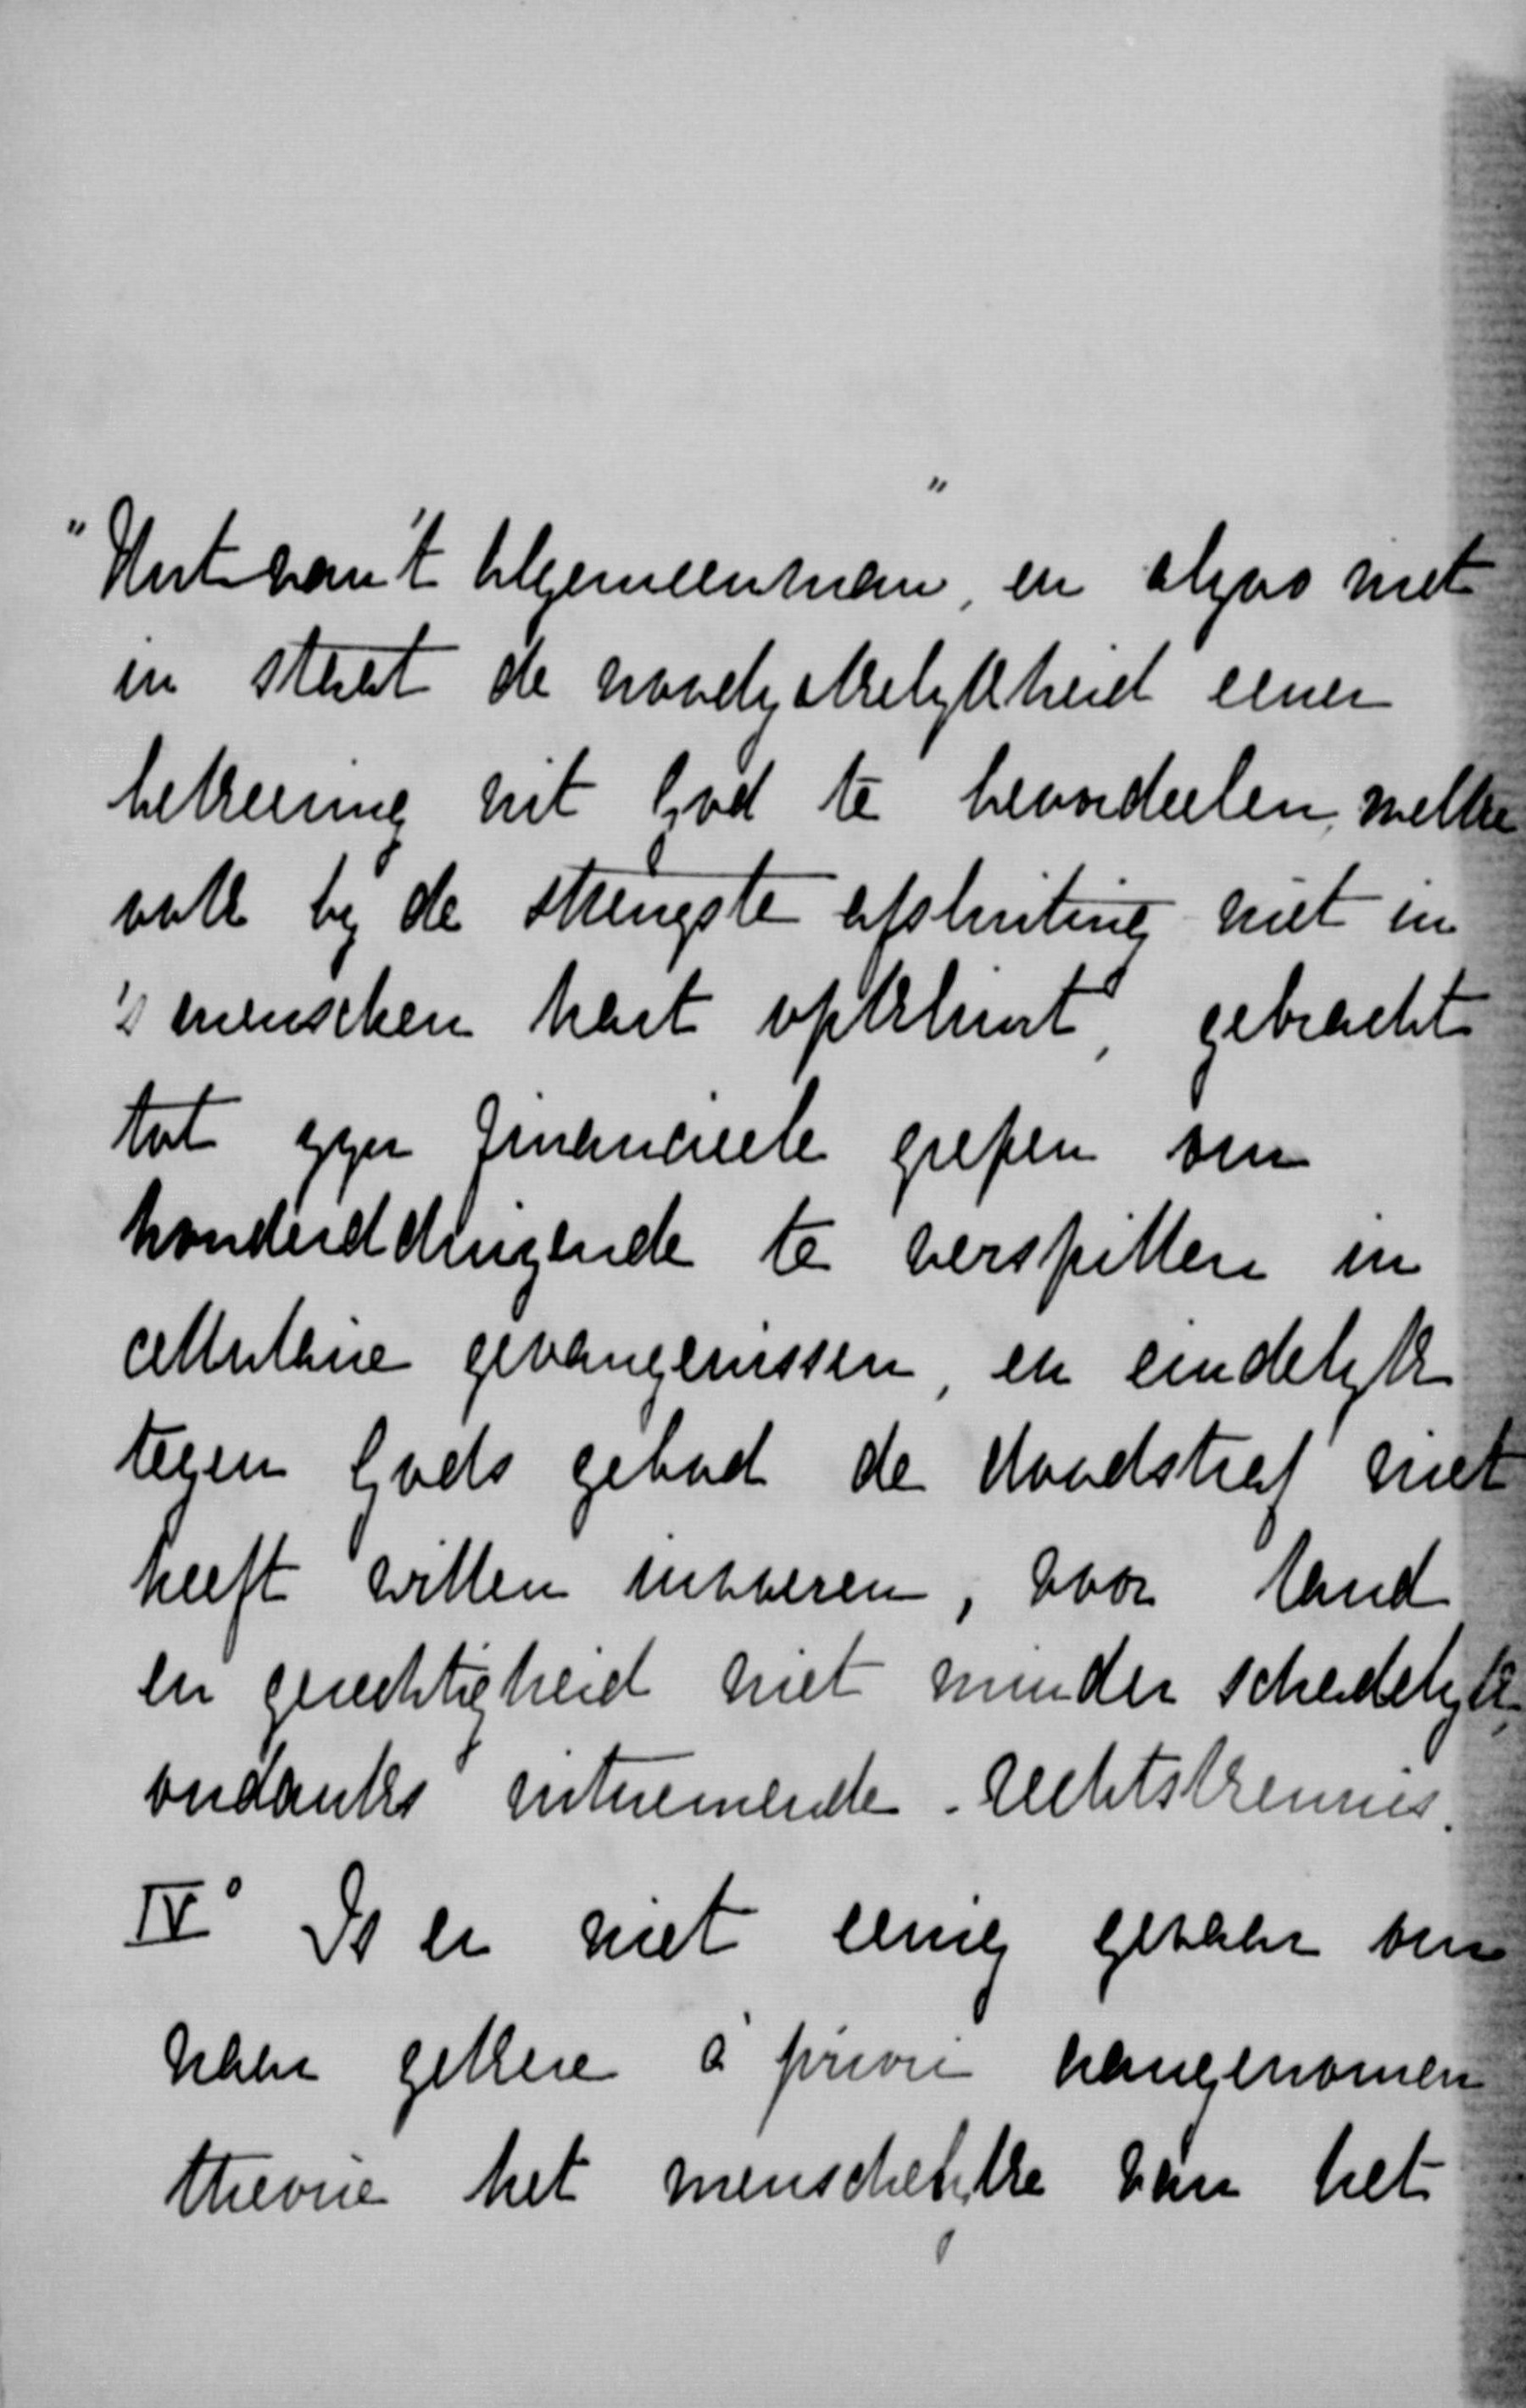 "Hart van 't Algemeen" van, en alzoo niet
in staat de noodzakelykheid eener
bekeering uit God te beoordeelen, welke
ook by de strengste afsluiting niet in
's menschen hart opkomt, gebracht
tot zyn financieele grepen om
honderdduizende te verspillen in
cellulaire gevangenissen, en eindelyk
tegen Gods gebod de doodstraf niet
heeft willen invoeren, voor land
en gerechtigheid niet minder schadelyk,
ondanks uitnemende rechtskennis.
IV° Is er niet eenig gevaar om
naar zekere à priori aangenomen
theorie het menschelyke van het